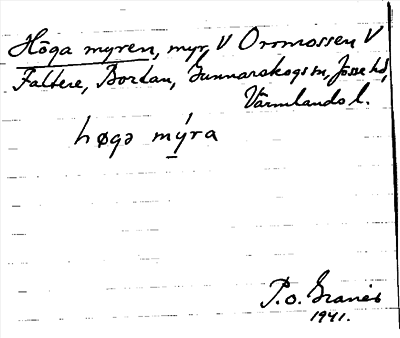 Höga myren, myr, V Orrmossen V
Faltere, Bortan, Gunnarskogs sn, Jösse hd,
Värmlands l.
høgə mýra
P.O. Granér
1941.